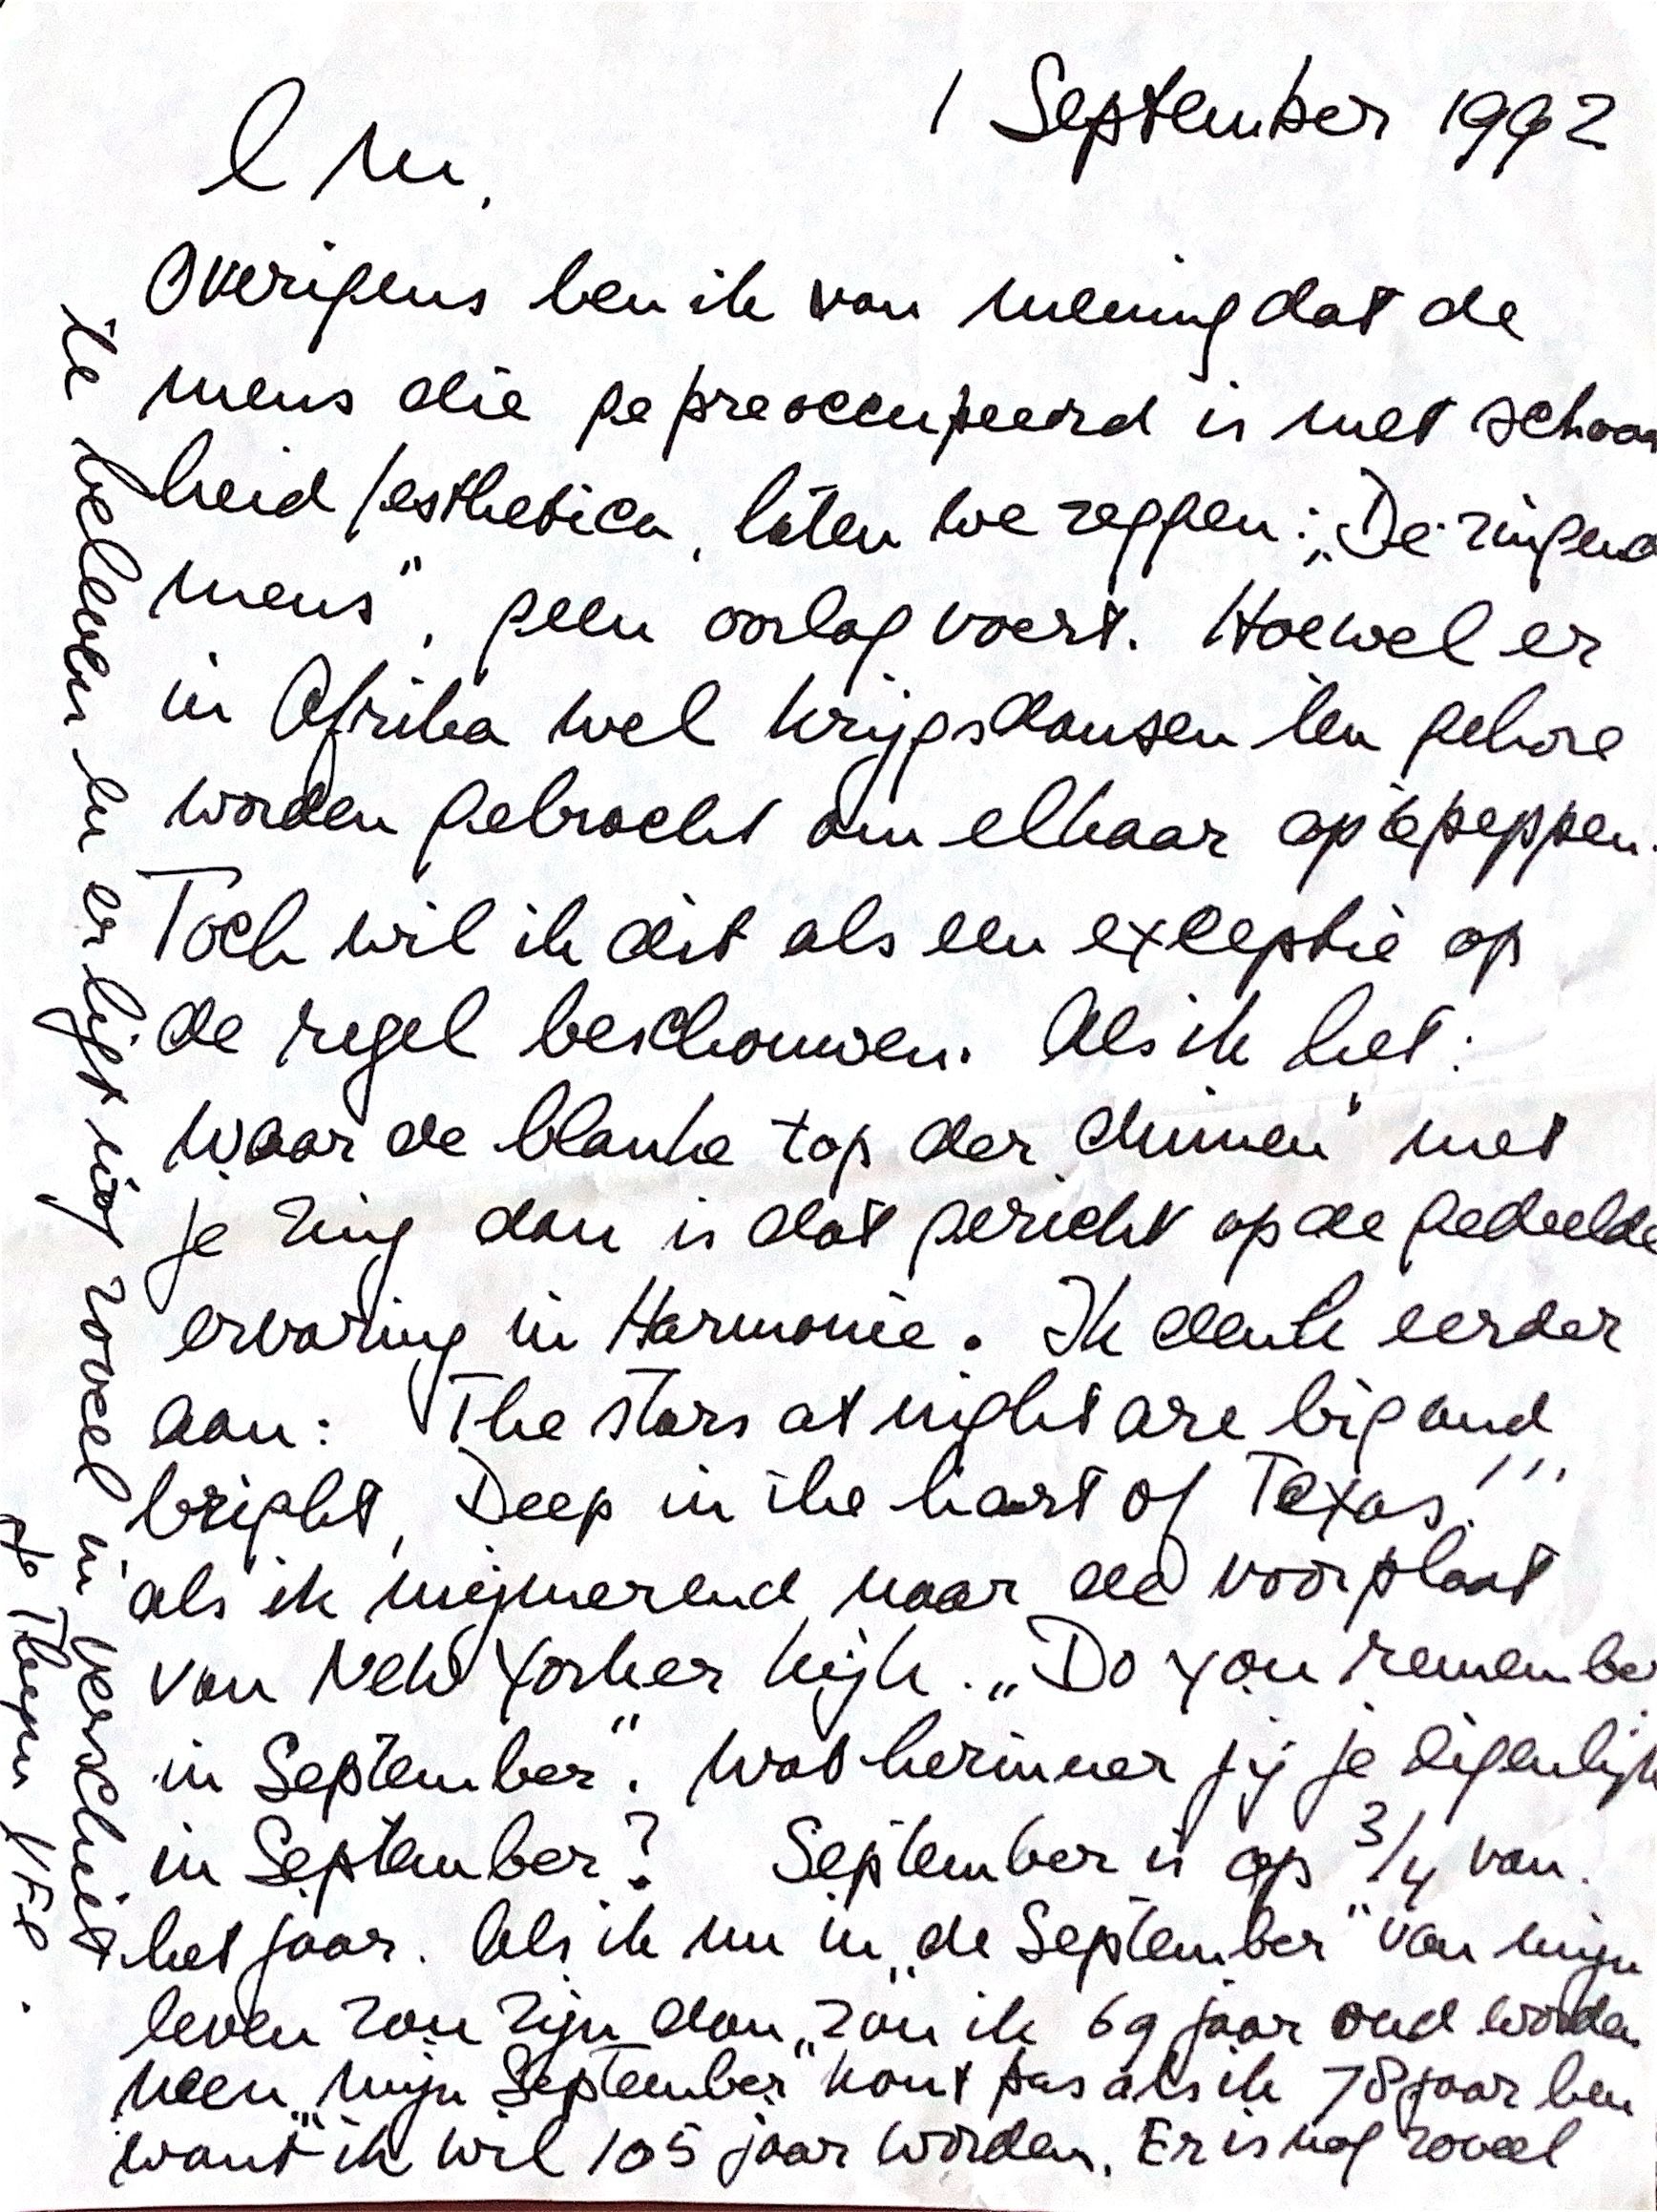 1 September 1992
L M,
Overigens ben ik van mening dat de
mens die gepreoccupeerd is met schoon
heid/esthetica, laten we zeggen: „De zingende
mens", geen oorlog voert. Hoewel er
in Afrika wel krijgsdansen ten gehore
worden gebracht om elkaar op te peppen.
Toch wil ik dit als een exceptie op
de regel beschouwen. Als ik het:
waar de blanke top der duinen" met
je zing dan is dat gericht op de gedeelde
ervaring in Harmonie. Ik denk eerder
aan: The stars at night are big and
bright, Deep in the heart of Texas!!!
als ik mijmerend naar de voorplaat
van New Yorker kijk. „Do you remember
in September". Wat herinner jij je eigenlijk
in September? September is op 3/4 van
het jaar. Als ik nu in „de September" van mijn
leven zou zijn dan zou ik 69 jaar oud worden
neen „mijn September" komt pas als ik 78 jaar ben
want ik wil 105 jaar worden. Er is nog zoveel
te beleven en er ligt nog zoveel in 't verschiet